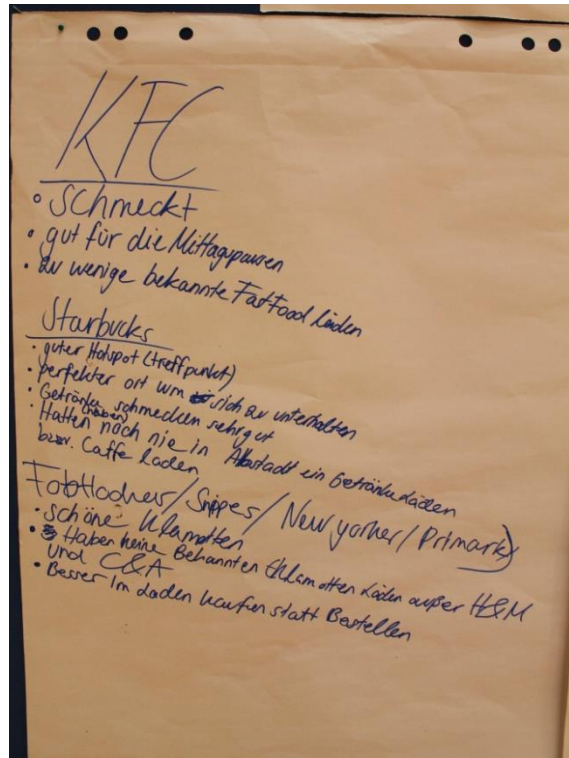 KFC
• schmeckt
• gut für die Mittagspausen
• zu wenige bekannte FastFood Läden
Starbucks
• guter Hotspot (treffpunkt)
• perfekter ort um sich zu unterhalten
• Getränke schmecken sehr gut
• Hatten (haben) noch nie in Albstadt ein Getränkeläden
bzw. Caffe laden
/ Snipes / New yorker / Primark)
• schöne Klamotten
• Haben keine Bekannten Klamotten Läden außer H&M
und C&A
• Besser Im Laden kaufen statt Bestellen